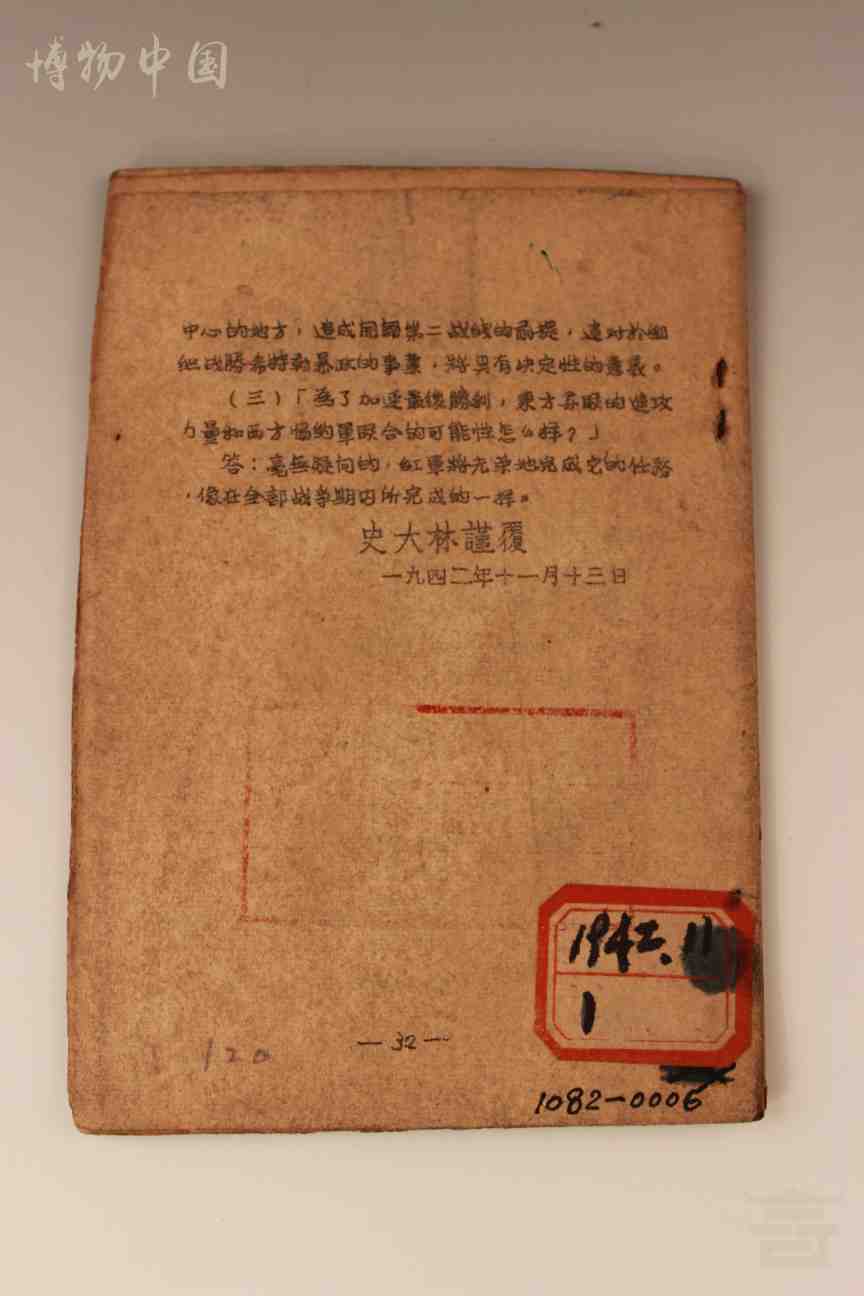 博物中国
中心的地方，造成開闢第二战线的前提，這对於組
織战勝希特勒暴政的事業，將具有决定性的意義。
（三）「為了加速最後勝利，東方苏联的進攻
力量和西方協約軍联合的可能性怎么样？」
答：毫無疑问的，紅軍將光荣地完成它的任務
，像在全部战争期内所完成的一样。
史大林謹覆
一九四二年十一月十三日
1942.11
1
120
—32—
1082-0006